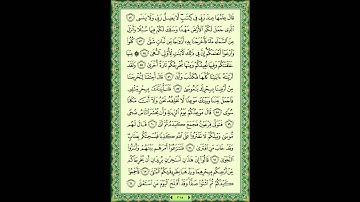 قَالَ عِلْمُهَا عِندَ رَبِّى فِى كِتَٰبٍ لَّا يَضِلُّ رَبِّى وَلَا يَنسَى ٥٢
ٱلَّذِى جَعَلَ لَكُمُ ٱلْأَرْضَ مَهْدًا وَسَلَكَ لَكُمْ فِيهَا سُبُلًا وَأَنزَلَ
مِنَ ٱلسَّمَآءِ مَآءً فَأَخْرَجْنَا بِهِۦٓ أَزْوَٰجًا مِّن نَّبَاتٍ شَتَّىٰ ٥٣ كُلُوا۟
وَٱرْعَوْا۟ أَنْعَٰمَكُمْ إِنَّ فِى ذَٰلِكَ لَءَايَٰتٍ لِّأُو۟لِى ٱلنُّهَىٰ ٥٤ ۞ مِنْهَا
خَلَقْنَٰكُمْ وَفِيهَا نُعِيدُكُمْ وَمِنْهَا نُخْرِجُكُمْ تَارَةً أُخْرَىٰ ٥٥ وَلَقَدْ
أَرَيْنَٰهُ ءَايَٰتِنَا كُلَّهَا فَكَذَّبَ وَأَبَىٰ ٥٦ قَالَ أَجِئْتَنَا لِتُخْرِجَنَا
مِنْ أَرْضِنَا بِسِحْرِكَ يَٰمُوسَىٰ ٥٧ فَلَنَأْتِيَنَّكَ بِسِحْرٍ مِّثْلِهِۦ
فَٱجْعَلْ بَيْنَنَا وَبَيْنَكَ مَوْعِدًا لَّا نُخْلِفُهُۥ نَحْنُ وَلَآ أَنتَ مَكَانًا
سُوًى ٥٨ قَالَ مَوْعِدُكُمْ يَوْمُ ٱلزِّينَةِ وَأَن يُحْشَرَ ٱلنَّاسُ ضُحًى
٥٩ فَتَوَلَّىٰ فِرْعَوْنُ فَجَمَعَ كَيْدَهُۥ ثُمَّ أَتَىٰ ٦٠ قَالَ لَهُم
مُّوسَىٰ وَيْلَكُمْ لَا تَفْتَرُوا۟ عَلَى ٱللَّهِ كَذِبًا فَيُسْحِتَكُم بِعَذَابٍ
وَقَدْ خَابَ مَنِ ٱفْتَرَىٰ ٦١ فَتَنَٰزَعُوٓا۟ أَمْرَهُم بَيْنَهُمْ وَأَسَرُّوا۟
ٱلنَّجْوَىٰ ٦٢ قَالُوٓا۟ إِنْ هَٰذَٰنِ لَسَٰحِرَٰنِ يُرِيدَانِ أَن يُخْرِجَاكُم
مِّنْ أَرْضِكُم بِسِحْرِهِمَا وَيَذْهَبَا بِطَرِيقَتِكُمُ ٱلْمُثْلَىٰ ٦٣ فَأَجْمِعُوا۟
كَيْدَكُمْ ثُمَّ ٱئْتُوا۟ صَفًّا وَقَدْ أَفْلَحَ ٱلْيَوْمَ مَنِ ٱسْتَعْلَىٰ ٦٤
٣١٥